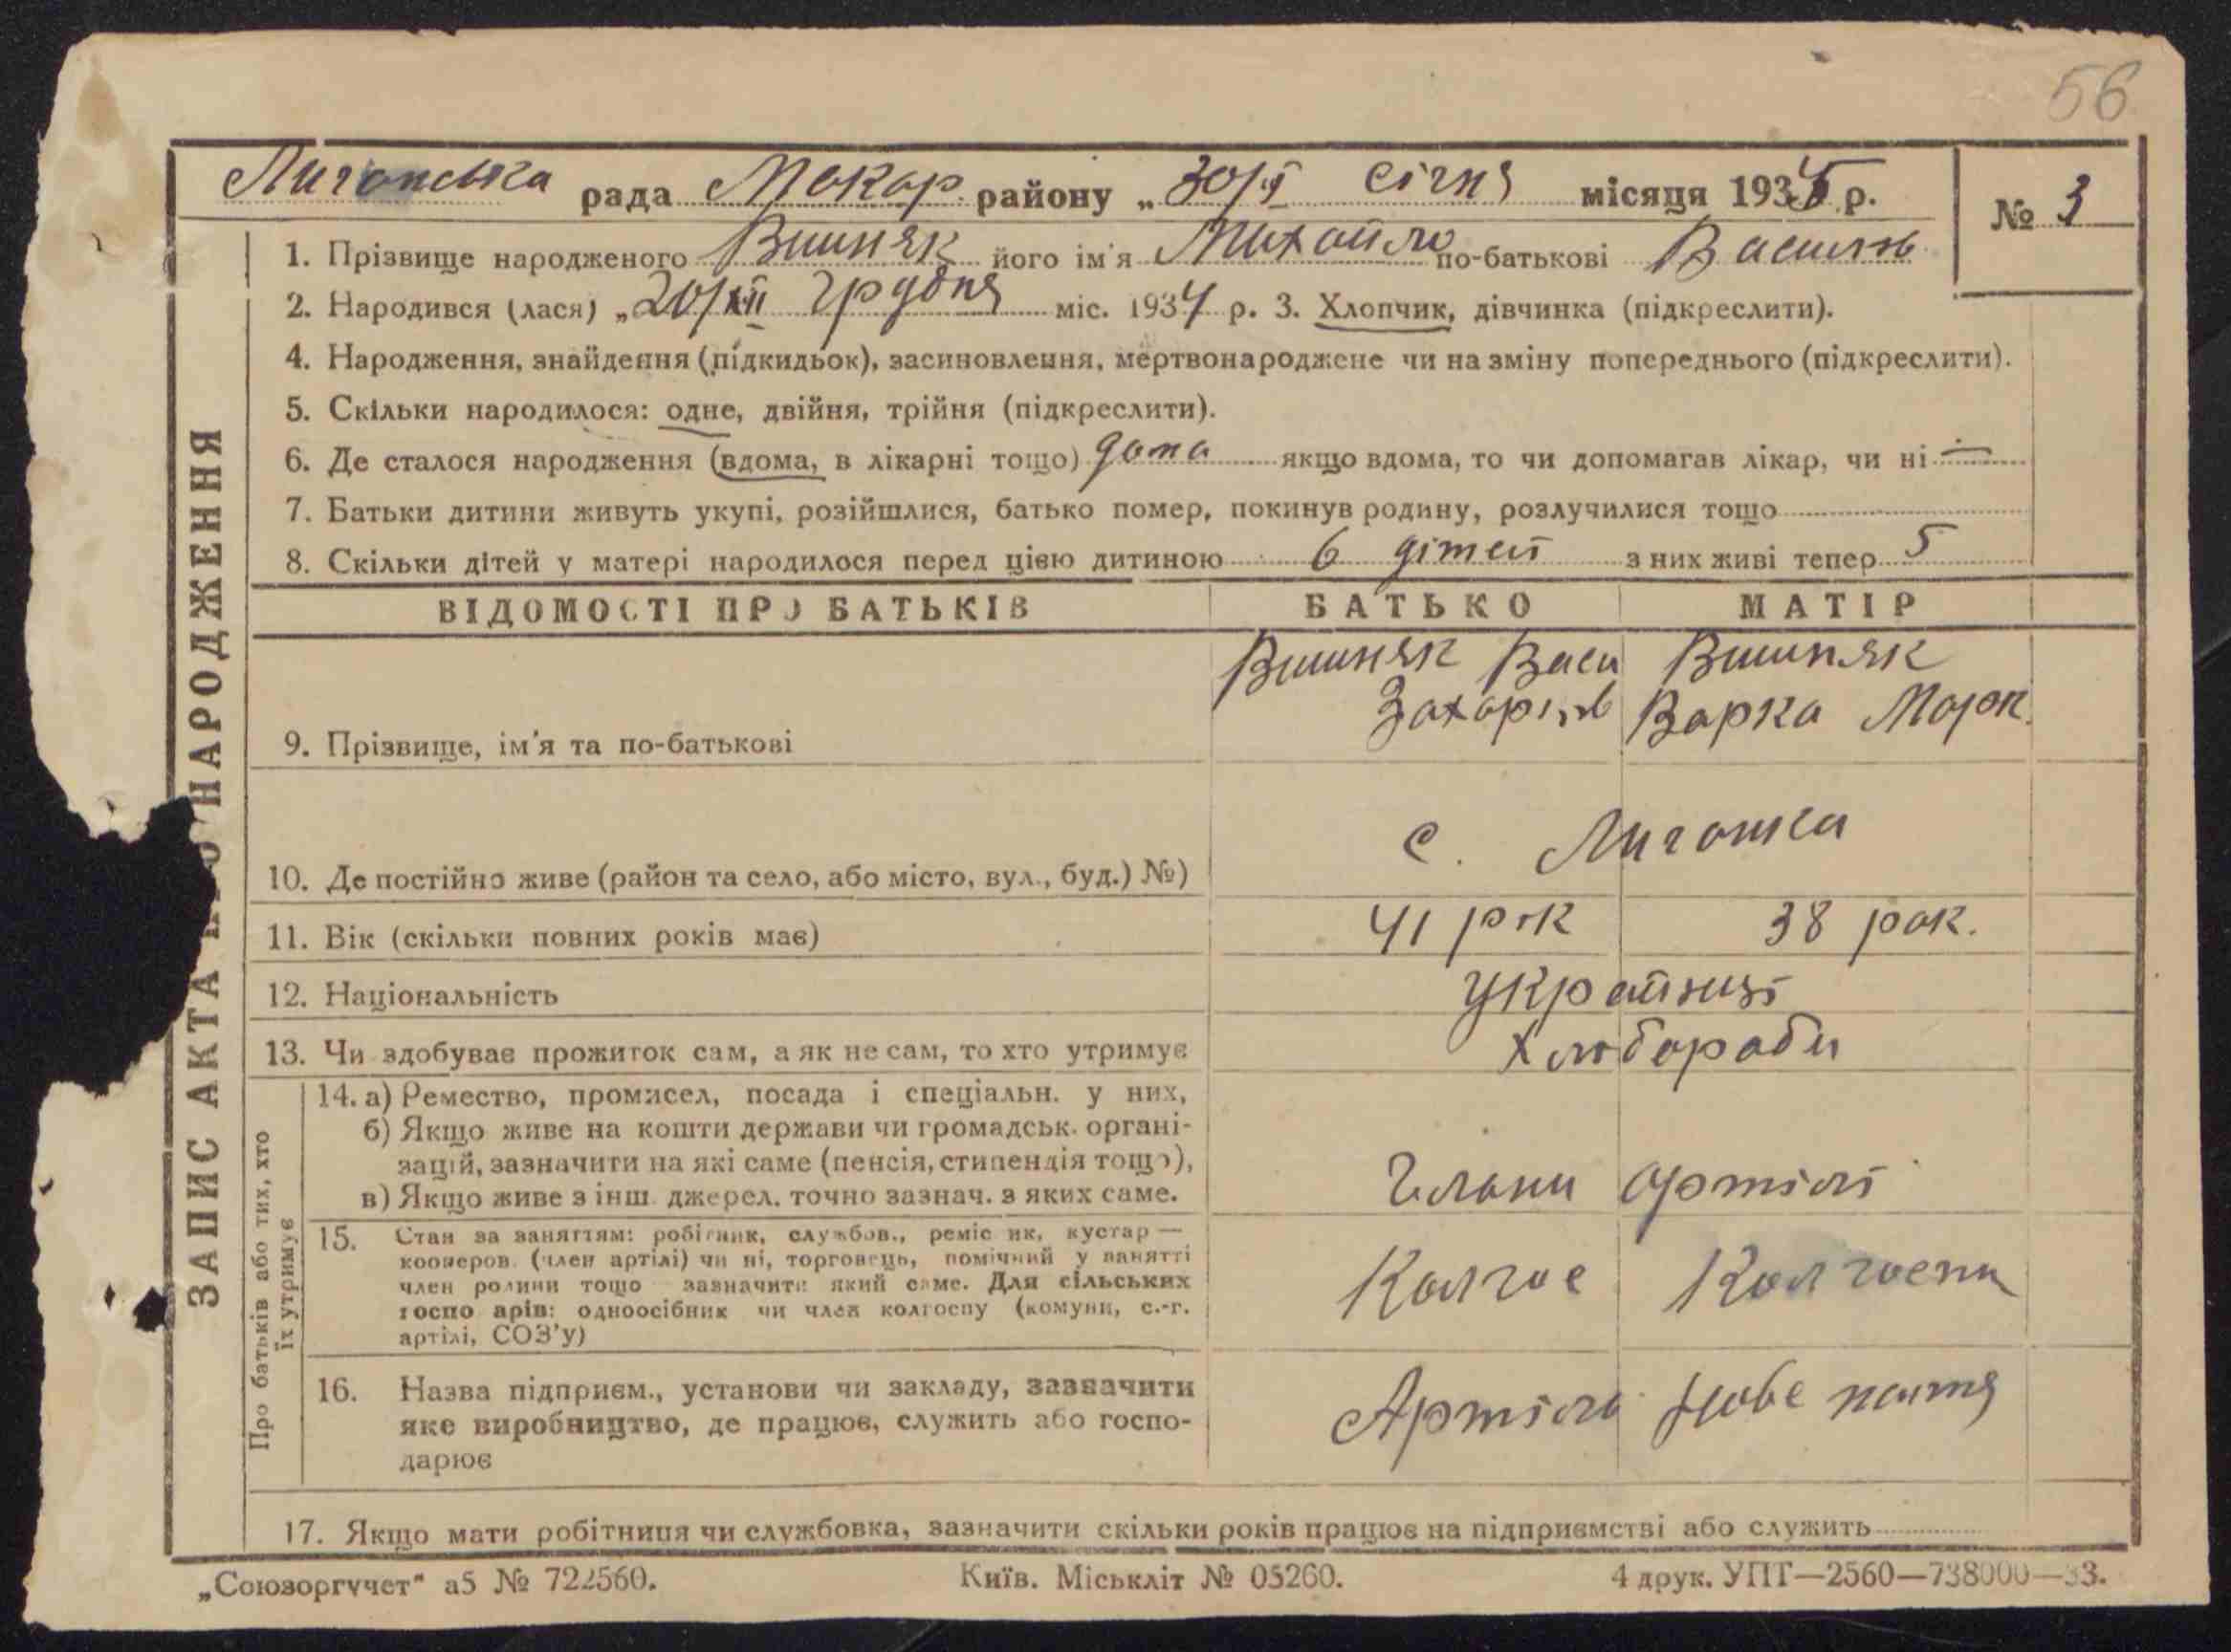 56
Личанська рада Макар. району „30/I січня місяця 1935 р.
№ 3
1. Прізвище народженого Вишняк його ім'я Михайло по-батькові Васильов
2. Народився (лася) „20/XII грудня міс. 1934 р. 3. Хлопчик, дівчинка (підкреслити).
4. Народження, знайдення (підкидьок), засиновлення, мертвонароджене чи на зміну попереднього (підкреслити).
5. Скільки народилося: одне, двійня, трійня (підкреслити).
6. Де сталося народження (вдома, в лікарні тощо) дома якщо вдома, то чи допомагав лікар, чи ні —
7. Батьки дитини живуть укупі, розійшлися, батько помер, покинув родину, розлучилися тощо
8. Скільки дітей у матері народилося перед цією дитиною 6 дітей з них живі тепер 5
ВІДОМОСТІ ПРО БАТЬКІВ БАТЬКО МАТІР
Вишняк Васи Вишняк
Захарів Варка Марк.
9. Прізвище, ім'я та по-батькові
с. Личанка
10. Де постійно живе (район та село, або місто, вул., буд.) №)
11. Вік (скільки повних років має) 41 рік 38 рок.
12. Національність українці
13. Чи здобуває прожиток сам, а як не сам, то хто утримує Хлібороби
14. а) Ремество, промисел, посада і спеціальн. у них,
б) Якщо живе на кошти держави чи громадськ. органі-
зацій, зазначити на які саме (пенсія, стипендія тощо),
в) Якщо живе з інш. джерел. точно зазнач. з яких саме.
Члени артілі
15. Стан за заняттям: робітник, службов., реміс ик, кустар —
кооперов. (член артілі) чи ні, торговець, помічний у занятті
член родини тощо зазначити який саме. Для сільських
господарів: одноосібник чи член колгоспу (комуни, с.-г.
артілі, СОЗ'у)
Колгос Колгоспн
16. Назва підприєм., установи чи закладу, зазначити
яке виробництво, де працює, служить або госпо-
дарює
Артіль Нове життя
17. Якщо мати робітниця чи службовка, зазначити скільки років працює на підприємстві або служить
ЗАПИС АКТА ПРО НАРОДЖЕННЯ
Про батьків або тих, хто
їх утримує
„Союзоргучет" а5 № 722560. Київ. Міськліт № 05260. 4 друк. УПТ—2560—738000—33.